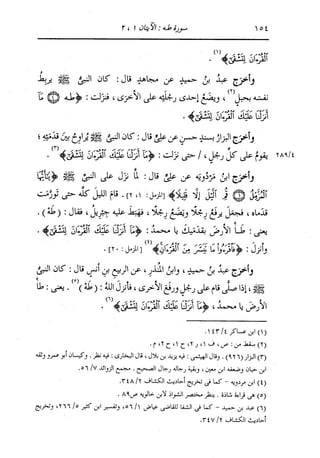 ٦٥٤ سورة طه : الآيتان ١ ، ٢
ٱلْقُرْءَانَ لِتَشْقَىٰٓ﴾(١).
وأخرج عبدُ بنُ حميدٍ عن مجاهدٍ قال : كان النبيُّ ﷺ يربطُ
نفسَه بحبلٍ(٢)، ويضَعُ إحدى رجليه على الأخرى ، فنزلت : ﴿طه ۝ مَآ
أَنزَلْنَا عَلَيْكَ ٱلْقُرْءَانَ لِتَشْقَىٰٓ﴾ .
وأخرج البزارُ بسندٍ حسنٍ عن عليٍّ قال : كان النبيُّ ﷺ يُراوحُ بينَ قدمَيه ؛
٢٨٩/٤ يقومُ على كلِّ رِجلٍ ، / حتى نزلت : ﴿مَآ أَنزَلْنَا عَلَيْكَ ٱلْقُرْءَانَ لِتَشْقَىٰٓ﴾(٣).
وأخرج ابنُ مَرْدُويَه عن عليٍّ قال: لمَّا نزل على النبيِّ ﷺ : ﴿يَٰٓأَيُّهَا
ٱلْمُزَّمِّلُ ۝ قُمِ ٱلَّيْلَ إِلَّا قَلِيلًا﴾ [المزمل: ١، ٢] . قام الليلَ كلَّه حتى تورَّمت
قدماه ، فجعَل يرفعُ رِجلًا ويضَعُ رِجلًا ، فهبَط عليه جبريلُ ، فقال : (طَهْ) .
يعنى : طأِ الأرضَ بقدمَيك يا محمدُ : ﴿مَآ أَنزَلْنَا عَلَيْكَ ٱلْقُرْءَانَ لِتَشْقَىٰٓ﴾ .
وأنزل : ﴿فَٱقْرَءُوا۟ مَا تَيَسَّرَ مِنَ ٱلْقُرْءَانِ﴾(٤) [المزمل : ٢٠] .
وأخرج عبدُ بنُ حميدٍ ، وابنُ المنذرِ ، عن الربيعِ بنِ أنسٍ قال : كان النبيُّ
ﷺ ، إذا صلَّى قام على رجلٍ ورفَع الأخرى ، فأنزل اللهُ : (طَهْ)(٥). يعنى : طَأِ
الأرضَ يا محمدُ ، ﴿مَآ أَنزَلْنَا عَلَيْكَ ٱلْقُرْءَانَ لِتَشْقَىٰٓ﴾(٦).
(١) ابن عساكر ١٤٣/٤.
(٢) سقط من : ص، ف ١، ر ٢، ح ١، ح ٢، م.
(٣) البزار (٩٢٦) . وقال الهيثمى : فيه يزيد بن بلال ، قال البخارى : فيه نظر . وكيسان أبو عمرو وثقه
ابن حبان وضعفه ابن معين، وبقية رجاله رجال الصحيح . مجمع الزوائد ٥٦/٧.
(٤) ابن مردويه - كما فى تخريج أحاديث الكشاف ٣٤٨/٢.
(٥) هى قراءة شاذة . ينظر مختصر الشواذ لابن خالويه ص٨٩.
(٦) عبد بن حميد - كما فى الشفا للقاضى عياض ٥٦/١، وتفسير ابن كثير ٢٦٦/٥، وتخريج
أحاديث الكشاف ٣٤٧/٢.